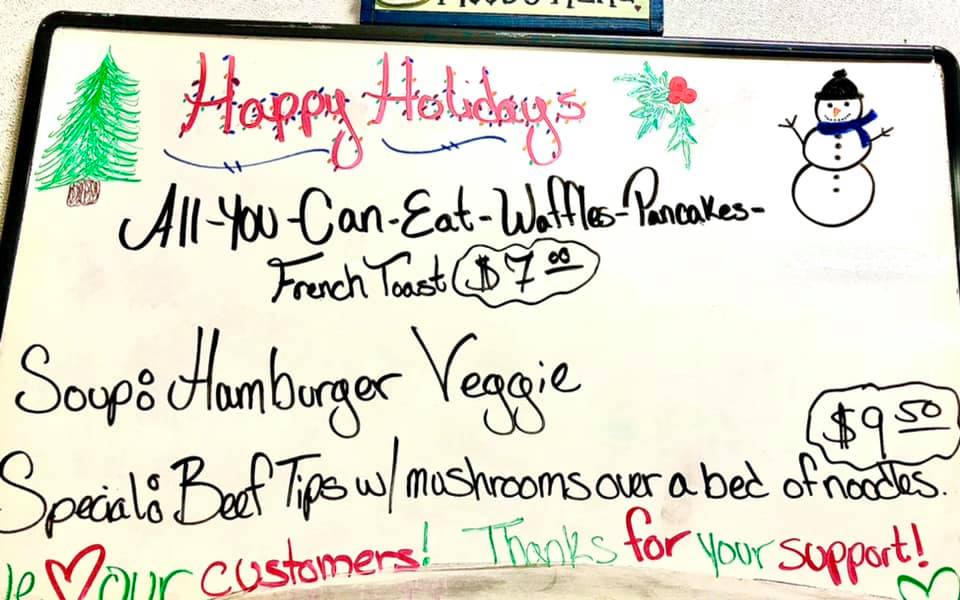 Happy Holidays
All-You-Can-Eat-Waffles-Pancakes-
French Toast $7.00
Soup: Hamburger Veggie
$9.50
Special: Beef Tips w/ mushrooms over a bed of noodles.
our customers! Thanks for your support!